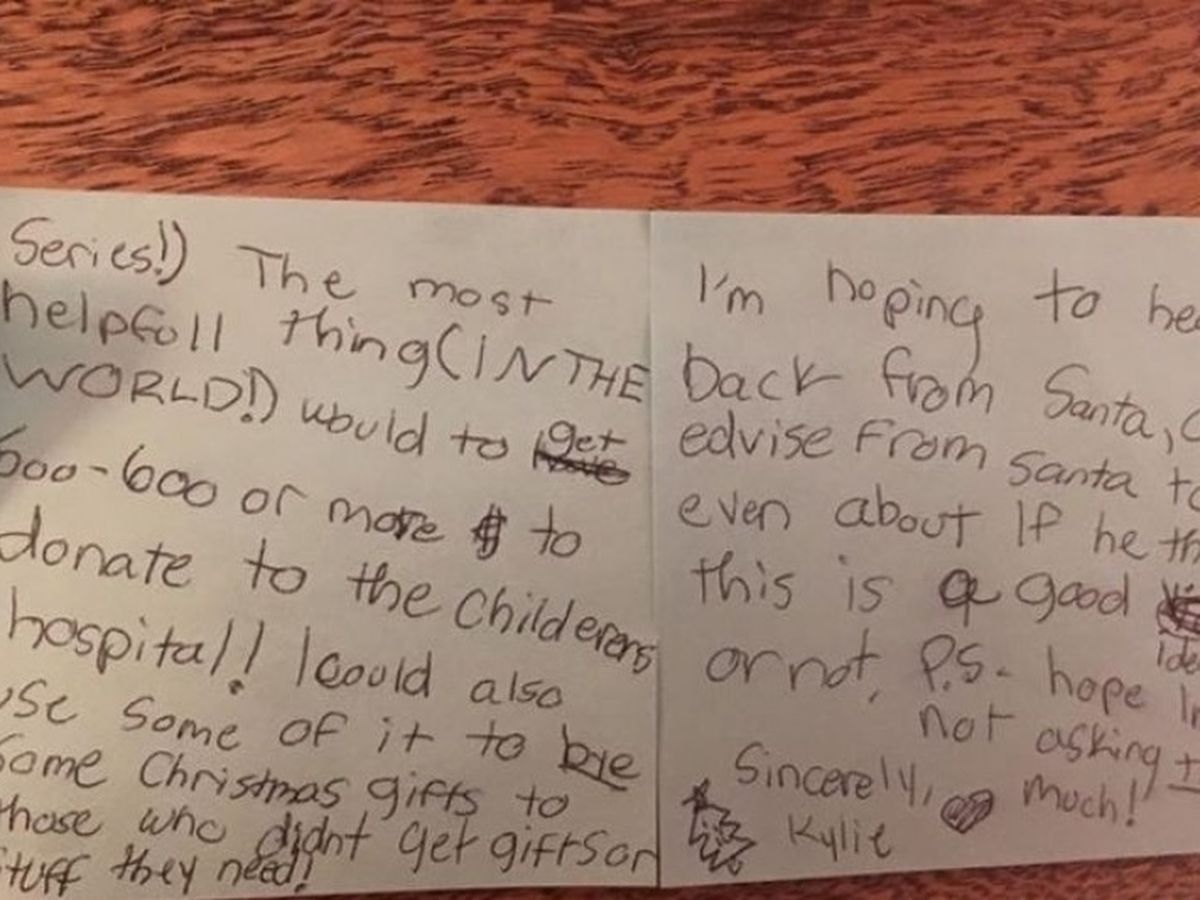 Series!) The most
helpfoll thing(IN THE
WORLD!) would to get
600-600 or more $ to
donate to the Childerens
hospital! I could also
use some of it to bye
some Christmas gifts to
those who didnt get gifts or
stuff they need!
I'm hoping to he
back from Santa,
edvise From Santa to
even about If he th
this is a good
ide
or not, P.S. hope I
not asking
much!
Sincerely,
Kylie